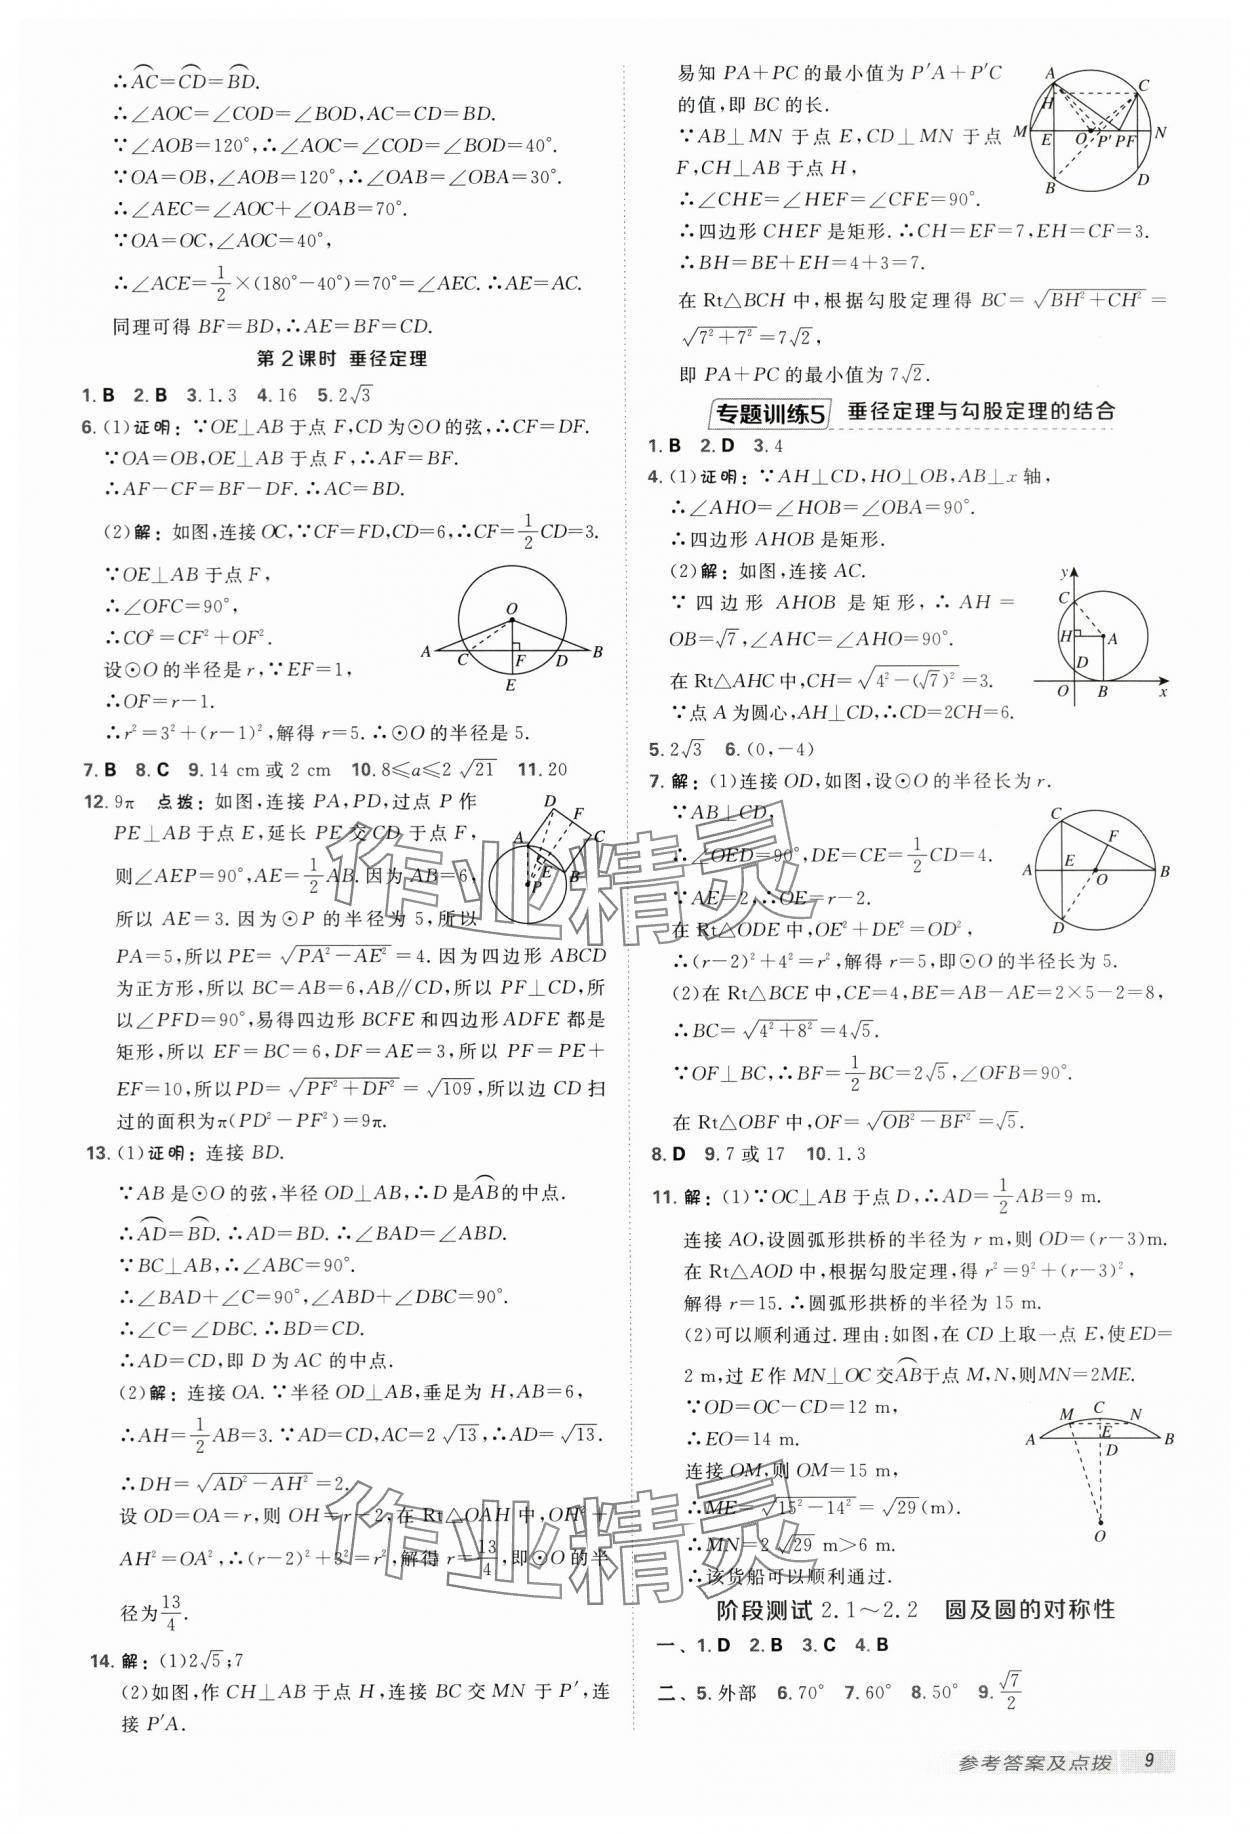 ∴A͡C=C͡D=B͡D.
∴∠AOC=∠COD=∠BOD,AC=CD=BD.
∵∠AOB=120°,∴∠AOC=∠COD=∠BOD=40°.
∵OA=OB,∠AOB=120°,∴∠OAB=∠OBA=30°.
∴∠AEC=∠AOC+∠OAB=70°.
∵OA=OC,∠AOC=40°,
∴∠ACE=1/2×(180°-40°)=70°=∠AEC.∴AE=AC.
同理可得 BF=BD,∴AE=BF=CD.
第2课时 垂径定理
1. B 2. B 3. 1.3 4. 16 5. 2√3
6. (1)证明：∵OE⊥AB于点F,CD为⊙O的弦,∴CF=DF.
∵OA=OB,OE⊥AB于点F,∴AF=BF.
∴AF-CF=BF-DF.∴AC=BD.
(2)解：如图,连接OC,∵CF=FD,CD=6,∴CF=1/2CD=3.
∵OE⊥AB于点F,
∴∠OFC=90°,
∴CO²=CF²+OF².
设⊙O的半径是r,∵EF=1,
∴OF=r-1.
∴r²=3²+(r-1)²,解得r=5.∴⊙O的半径是5.
O
A C F D B
E
7. B 8. C 9. 14 cm或2 cm 10. 8≤a≤2√21 11. 20
12. 9π 点拨：如图,连接PA,PD,过点P作
PE⊥AB于点E,延长PE交CD于点F,
则∠AEP=90°,AE=1/2AB.因为AB=6,
所以AE=3.因为⊙P的半径为5,所以
PA=5,所以PE=√(PA²-AE²)=4.因为四边形ABCD
为正方形,所以BC=AB=6,AB∥CD,所以PF⊥CD,所
以∠PFD=90°,易得四边形BCFE和四边形ADFE都是
矩形,所以EF=BC=6,DF=AE=3,所以PF=PE+
EF=10,所以PD=√(PF²+DF²)=√109,所以边CD扫
过的面积为π(PD²-PF²)=9π.
D F
A C
E B
P
13. (1)证明：连接BD.
∵AB是⊙O的弦,半径OD⊥AB,∴D是A͡B的中点.
∴A͡D=B͡D.∴AD=BD.∴∠BAD=∠ABD.
∵BC⊥AB,∴∠ABC=90°.
∴∠BAD+∠C=90°,∠ABD+∠DBC=90°.
∴∠C=∠DBC.∴BD=CD.
∴AD=CD,即D为AC的中点.
(2)解：连接OA.∵半径OD⊥AB,垂足为H,AB=6,
∴AH=1/2AB=3.∵AD=CD,AC=2√13,∴AD=√13.
∴DH=√(AD²-AH²)=2.
设OD=OA=r,则OH=r-2,在Rt△OAH中,OH²+
AH²=OA²,∴(r-2)²+3²=r²,解得r=13/4,即⊙O的半
径为13/4.
14. 解：(1)2√5;7
(2)如图,作CH⊥AB于点H,连接BC交MN于P′,连
接P′A.
易知PA+PC的最小值为P′A+P′C
的值,即BC的长.
∵AB⊥MN于点E,CD⊥MN于点
F,CH⊥AB于点H,
∴∠CHE=∠HEF=∠CFE=90°.
∴四边形CHEF是矩形.∴CH=EF=7,EH=CF=3.
∴BH=BE+EH=4+3=7.
在Rt△BCH中,根据勾股定理得BC=√(BH²+CH²)=
√(7²+7²)=7√2,
即PA+PC的最小值为7√2.
A C
H
M E O P′ P F N
B D
专题训练5 垂径定理与勾股定理的结合
1. B 2. D 3. 4
4. (1)证明：∵AH⊥CD,HO⊥OB,AB⊥x轴,
∴∠AHO=∠HOB=∠OBA=90°.
∴四边形AHOB是矩形.
(2)解：如图,连接AC.
∵四边形AHOB是矩形,∴AH=
OB=√7,∠AHC=∠AHO=90°.
在Rt△AHC中,CH=√(4²-(√7)²)=3.
∵点A为圆心,AH⊥CD,∴CD=2CH=6.
y
C
H A
D
O B x
5. 2√3 6. (0,-4)
7. 解：(1)连接OD,如图,设⊙O的半径长为r.
∵AB⊥CD,
∴∠OED=90°,DE=CE=1/2CD=4.
∵AE=2,∴OE=r-2.
在Rt△ODE中,OE²+DE²=OD²,
∴(r-2)²+4²=r²,解得r=5,即⊙O的半径长为5.
(2)在Rt△BCE中,CE=4,BE=AB-AE=2×5-2=8,
∴BC=√(4²+8²)=4√5.
∵OF⊥BC,∴BF=1/2BC=2√5,∠OFB=90°.
在Rt△OBF中,OF=√(OB²-BF²)=√5.
C
F
A E O B
D
8. D 9. 7或17 10. 1.3
11. 解：(1)∵OC⊥AB于点D,∴AD=1/2AB=9 m.
连接AO,设圆弧形拱桥的半径为r m,则OD=(r-3)m.
在Rt△AOD中,根据勾股定理,得r²=9²+(r-3)²,
解得r=15.∴圆弧形拱桥的半径为15 m.
(2)可以顺利通过.理由：如图,在CD上取一点E,使ED=
2 m,过E作MN⊥OC交A͡B于点M,N,则MN=2ME.
∵OD=OC-CD=12 m,
∴EO=14 m.
连接OM,则OM=15 m,
∴ME=√(15²-14²)=√29(m).
∴MN=2√29 m>6 m.
∴该货船可以顺利通过.
M C N
E
A D B
O
阶段测试2.1～2.2 圆及圆的对称性
一、1. D 2. B 3. C 4. B
二、5. 外部 6. 70° 7. 60° 8. 50° 9. √7/2
参考答案及点拨 9
作业精灵
作业精灵